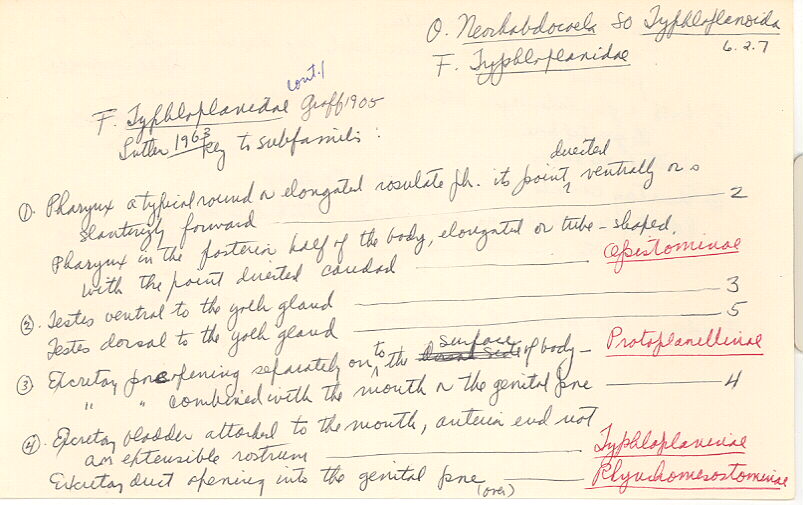 O. Neorhabdocoela SO Typhloplanoida
F. Typhloplanidae 6.2.7
cont.
F. Typhloplanidae Graff 1905
Luther 1963 key to subfamilies :
① Pharynx a typical round or elongated rosulate ph. its point directed ventrally or
slantingly forward 2
Pharynx in the posterior half of the body, elongated or tube-shaped,
with the point directed caudad Opistominae
② Testes ventral to the yolk gland 3
Testes dorsal to the yolk gland 5
③ Excretory pore opening separately on to the surface of body - Protoplanellinae
" " combined with the mouth or the genital pore 4
④ Excretory bladder attached to the mouth, anterior end not
an extensible rostrum Typhloplaninae
Excretory duct opening into the genital pore Rhynchomesostominae
(over)